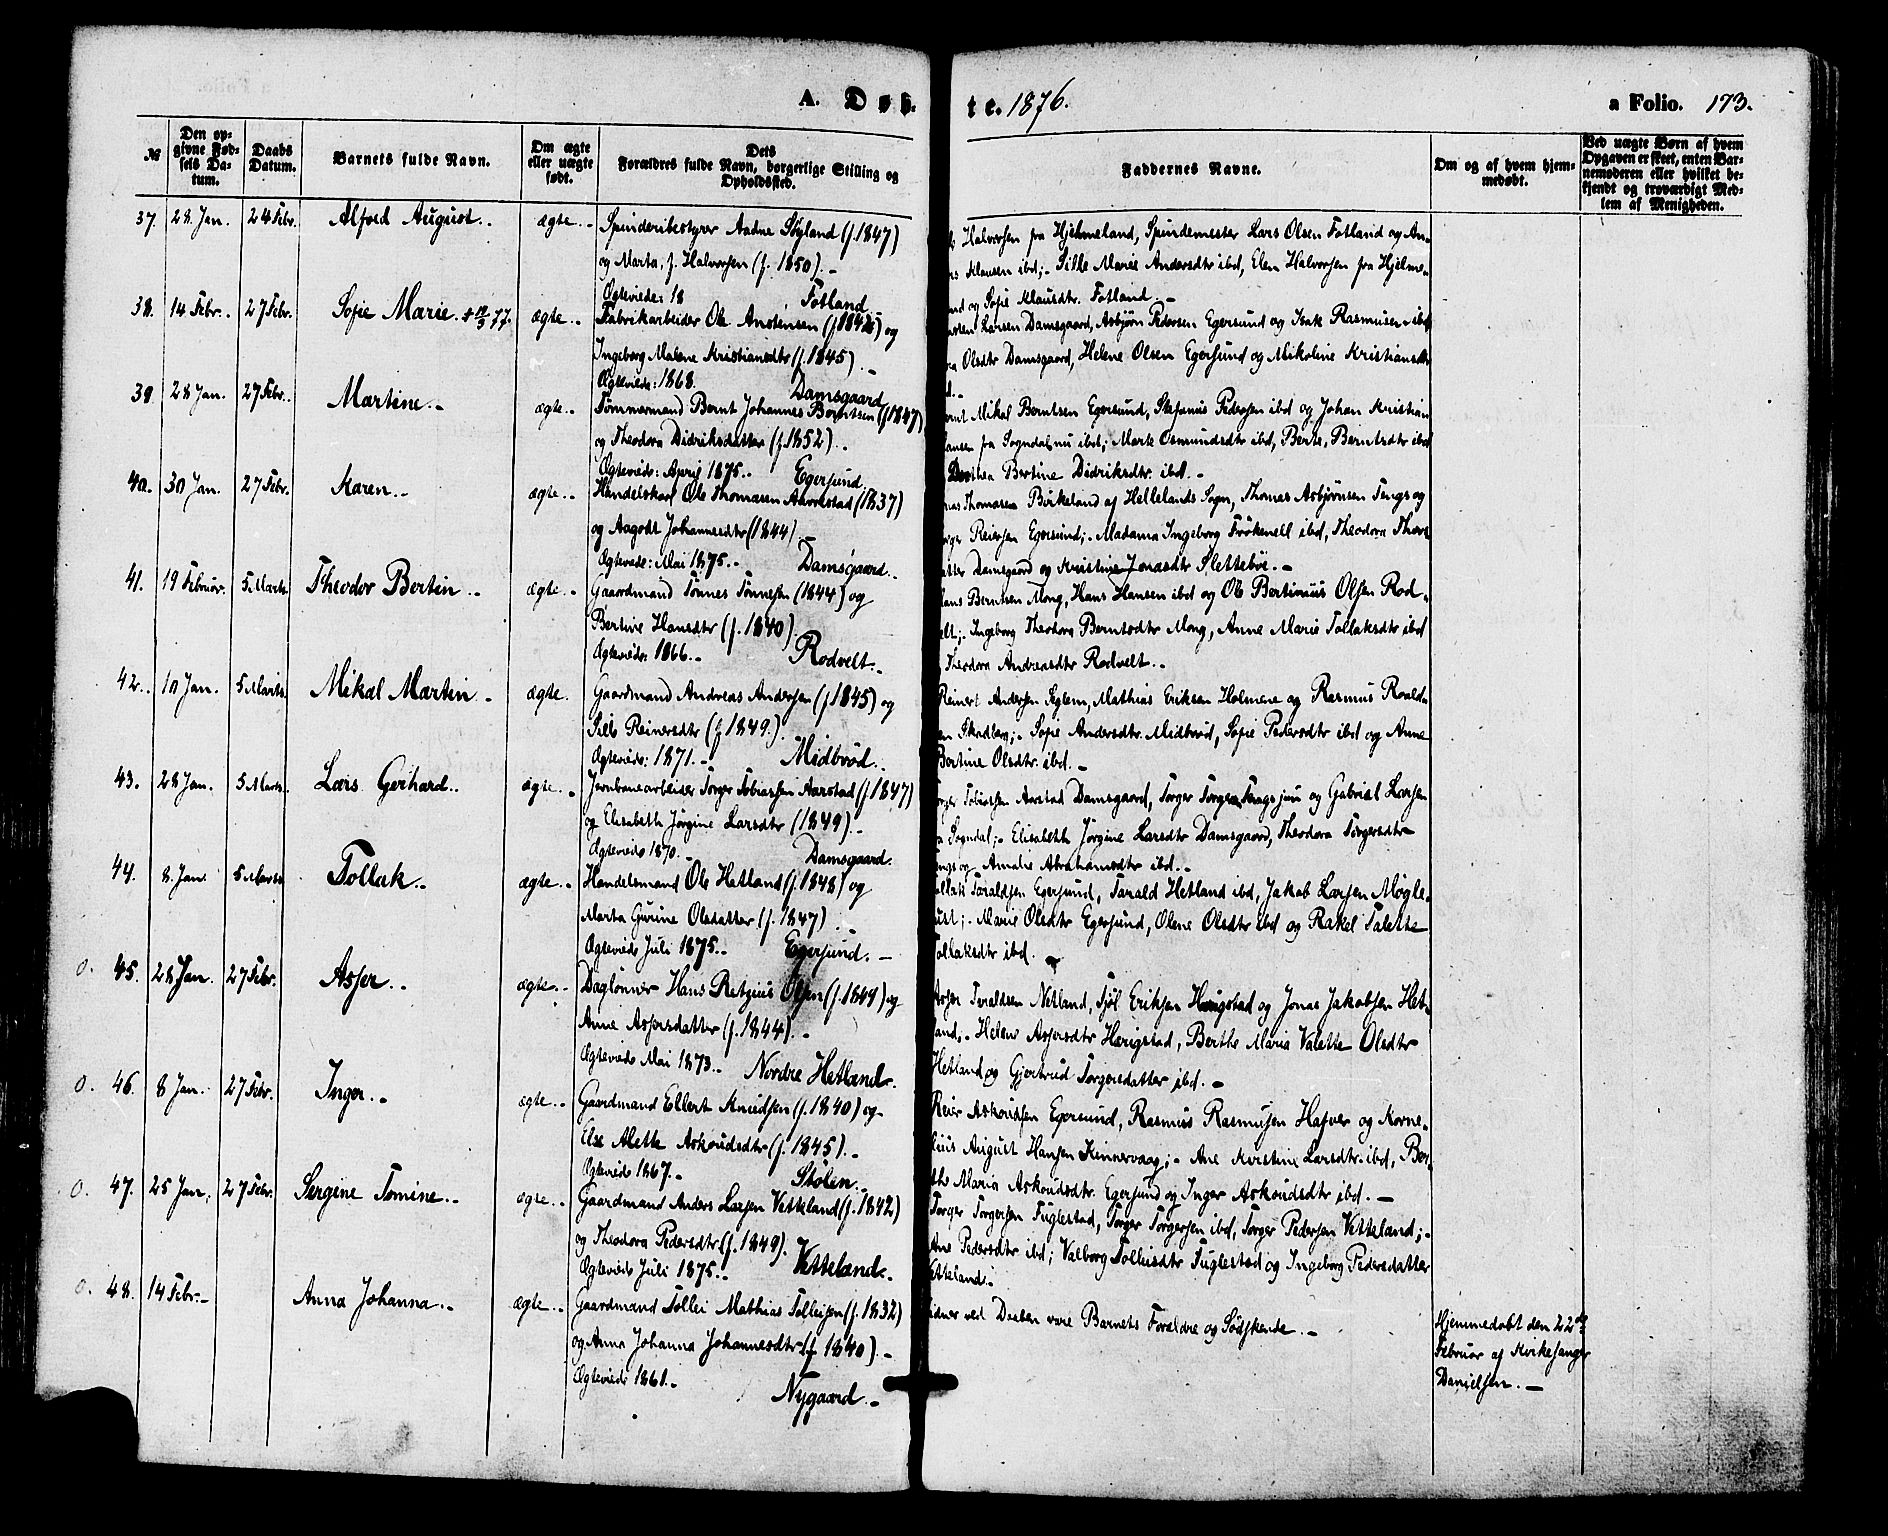 A. Døb-
te. 1876.
a Folio. 173.
№
Den op-
givne Fød-
sels Da-
tum.
Daabs
Datum.
Barnets fulde Navn.
Om ægte
eller uægte
født.
Dets
Forældres fulde Navn, borgerlige Stilling og
Opholdssted.
Faddernes Navne.
Om og af hvem hjem-
medøbt.
Ved uægte Børn af hvem
Opgaven er skeet, enten Bar-
nemoderen eller hvilket be-
kjendt og troværdigt Med-
lem af Menigheden.
37. 28. Jan. 24 Febr. Alfred August.. ægte..
Spinderibestyrer Aadne Søyland (f. 1847)
og Marta, f. Halvorsen (f. 1850).
Ægteviede: 18 Fotland
Halvorsen fra Hjelmeland, Spindemester Lars Olsen Fotland og An-
Klausen ibd;- Silke Marie Andersdtr ibd, Elen Halvorsen fra Hjelme-
og Sofie Klausdtr. Fotland.
38. 14 Febr.. 27 Febr. Sofie Marie. + 12/3 77. ægte..
Fabrikarbeider Ole Anstensen (f. 1842) og
Ingeborg Malene Kristiansdtr (f. 1845).
Ægteviede: 1868. Damsgaard
Larsen Damsgaard, Asbjørn Pedersen Egersund og Isak Rasmusen ibd
Olsdtr Damsgaard, Helene Olsen Egersund og Mikoline Kristiansdtr
39. 28 Jan. 27 Febr.. Martine.. ægte..
Tømmermand Bernt Johannes Berntsen (f 1847)
og Theodora Didriksdatter (f. 1852).
Ægteviede: April 1875.. Egersund.
Mikal Berntsen Egersund, Stefanus Pedersen ibd og Johan Kristian
fra Sogndal, nu ibd; Marte Osmundsdtr ibd, Berte, Berntsdtr ibd
Bertine Didriksdtr. ibd.
40. 30 Jan. 27 Febr. Karen.. ægte..
Handelskarl Ole Thomasen Aarrestad (1837)
og Aagodt Johannesdtr (1844).
Ægteviede: Mai 1875.. Damsgaard..
Thomasen Birkeland af Hellelands Sogn, Thomas Asbjørnsen Tengs og
Reiersen Egersund; Madama Ingeborg ibd, Theodora
Damsgaard og Kristine Jonasdtr Slettebøe.
41. 19 Februar. 5 Marts. Theodor Bertin.. ægte..
Gaardmand Tønnes Tønnesen (1844) og
Bertine Hansdtr (f. 1840).
Ægteviede: 1866. Rodvelt..
Berntsen Mong, Hans Hansen ibd og Ole Bertinius Olsen Rod-
velt; Ingeborg Theodora Berntsdtr Mong, Anne Marie Tollaksdtr ibd
Theodora Andreasdtr Rodvelt..
42.. 10 Jan. 5 Marts. Mikal Martin. ægte.
Gaardmand Andreas Andersen (f 1845) og
Sille Reinersdtr (f 1849.).
Ægteviede: 1871. Midbrød..
Reinert Andersen Eglem, Mathias Eriksen Holmene og Rasmus Roald-
sen Skadberg; Sofie Andersdtr. Midbrød, Sofie Pedersdtr ibd og Anne
Bertine Olsdtr. ibd.
43. 28 Jan. 5 Marts.. Lars Gerhard.. ægte..
Jernbanearbeider Torger Tobiassen Aarstad (f 1847)
og Elisabeth Jørgine Larsdtr (1849).
Ægteviede 1870. Damsgaard.
Torger Tobiassen Aarstad Damsgaard, Torger og Gabriel Larsen
Sogndal; Elisabeth Jørgine Larsdtr Damsgaard, Theodora Torgersdtr
Tengs og Amalie Abrahamsdtr ibd..
44. 8. Jan. 5 Marts Tollak.. ægte..
Handelsmand Ole Hetland (f. 1848) og
Marta Gurine Olsdatter (f. 1847).
Ægteviede Juli 1875.. Egersund.
Tollak Taraldsen Egersund, Tarald Hetland ibd, Jakob Larsen Møgle-
Marie Olsdtr Egersund, Olene Olsdtr ibd og Rakel Talette
Tollaksdtr ibd.
0. 45. 28 Jan. 27 Febr. Asser.. ægte..
Daglønner Hans Retzius Olsen (f. 1844) og
Anne Assersdatter (f. 1844).
Ægteviede Mai 1873.. Nordre Hetland.
Asser Taraldsen Netland, Sjöl Eriksen Herigstad og Jonas Jakobsen Het-
land, Helene Assersdtr Herigstad, Berthe Maria Valette Olsdtr
Hetland og Gjertrud Torgersdatter ibd.
0. 46. 8 Jan. 27 Febr. Inger.. ægte..
Gaardmand Ellert Knudsen (f. 1840) og
Else Alette Askoudsdtr (f. 1845).
Ægteviede 1867.. Stølen..
Reier Askoudsen Egersund, Rasmus Rasmusen Hafver og Korne-
lius August Hansen Kinnervaag; Ane Kirstine Larsdtr. ibd, Ber-
the Maria Askoudsdtr. Egersund og Inger Askoudsdtr ibd.
0. 47. 25 Jan. 27 Febr. Sergine Tomine.. ægte..
Gaardmand Anders Larsen Vetteland (f. 1842)
og Theodora Pedersdtr. (f. 1849).
Ægteviede Juli 1875.. Vetteland.
Torger Torgersen Fuglestad, Torger Torgersen ibd, Torger Pedersen Vetteland;
Ane Pedersdtr ibd; Valborg Tolleisdtr Fuglestad og Ingeborg Pedersdatter
Vetteland.
0. 48. 14 Febr. Anna Johanna.. ægte..
Gaardmand Tollei Mathias Tolleisen (f. 1832)
og Anna Johanna Johannesdtr (f 1840).
Ægteviede 1861. Nygaard.
Vidner ved Daaben vare Barnets Forældre og Sødskende.
Hjemmedøbt den 22de
Februar af Kirkesanger
Danielsen.